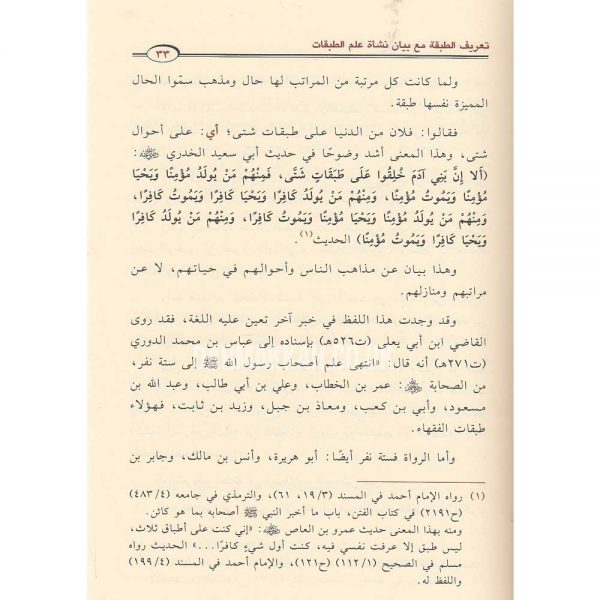 تعريف الطبقة مع بيان نشأة علم الطبقات
٣٣
ولما كانت كل مرتبة من المراتب لها حال ومذهب سمّوا الحال
المميزة نفسها طبقة.
فقالوا: فلان من الدنيا على طبقات شتى؛ أي: على أحوال
شتى، وهذا المعنى أشد وضوحًا في حديث أبي سعيد الخدري ﷺ:
(أَلا إِنَّ بَنِي آدَمَ خُلِقُوا عَلَى طَبَقَاتٍ شَتَّى، فَمِنْهُمْ مَنْ يُولَدُ مُؤْمِنًا وَيَحْيَا
مُؤْمِنًا وَيَمُوتُ مُؤْمِنًا، وَمِنْهُمْ مَنْ يُولَدُ كَافِرًا وَيَحْيَا كَافِرًا وَيَمُوتُ كَافِرًا،
وَمِنْهُمْ مَنْ يُولَدُ مُؤْمِنًا وَيَحْيَا مُؤْمِنًا وَيَمُوتُ كَافِرًا، وَمِنْهُمْ مَنْ يُولَدُ كَافِرًا
وَيَحْيَا كَافِرًا وَيَمُوتُ مُؤْمِنًا) الحديث(١).
وهذا بيان عن مذاهب الناس وأحوالهم في حياتهم، لا عن
مراتبهم ومنازلهم.
وقد وجدت هذا اللفظ في خبر آخر تعين عليه اللغة، فقد روى
القاضي ابن أبي يعلى (ت٥٢٦هـ) بإسناده إلى عباس بن محمد الدوري
(ت٢٧١هـ) أنه قال: «انتهى علم أصحاب رسول الله ﷺ إلى ستة نفر،
من الصحابة: عمر بن الخطاب، وعلي بن أبي طالب، وعبد الله بن
مسعود، وأبي بن كعب، ومعاذ بن جبل، وزيد بن ثابت، فهؤلاء
طبقات الفقهاء.
وأما الرواة فستة نفر أيضًا: أبو هريرة، وأنس بن مالك، وجابر بن
(١) رواه الإمام أحمد في المسند (١٩/٣، ٦١)، والترمذي في جامعه (٤٨٣/٤)
(ح٢١٩١) في كتاب الفتن، باب ما أخبر النبي ﷺ أصحابه بما هو كائن.
ومنه بهذا المعنى حديث عمرو بن العاص: «إني كنت على أطباق ثلاث،
ليس طبق إلا عرفت نفسي فيه، كنت أول شيءٍ كافرًا...» الحديث رواه
مسلم في الصحيح (١١٢/١) (ح١٢١)، والإمام أحمد في المسند (١٩٩/٤)
واللفظ له.